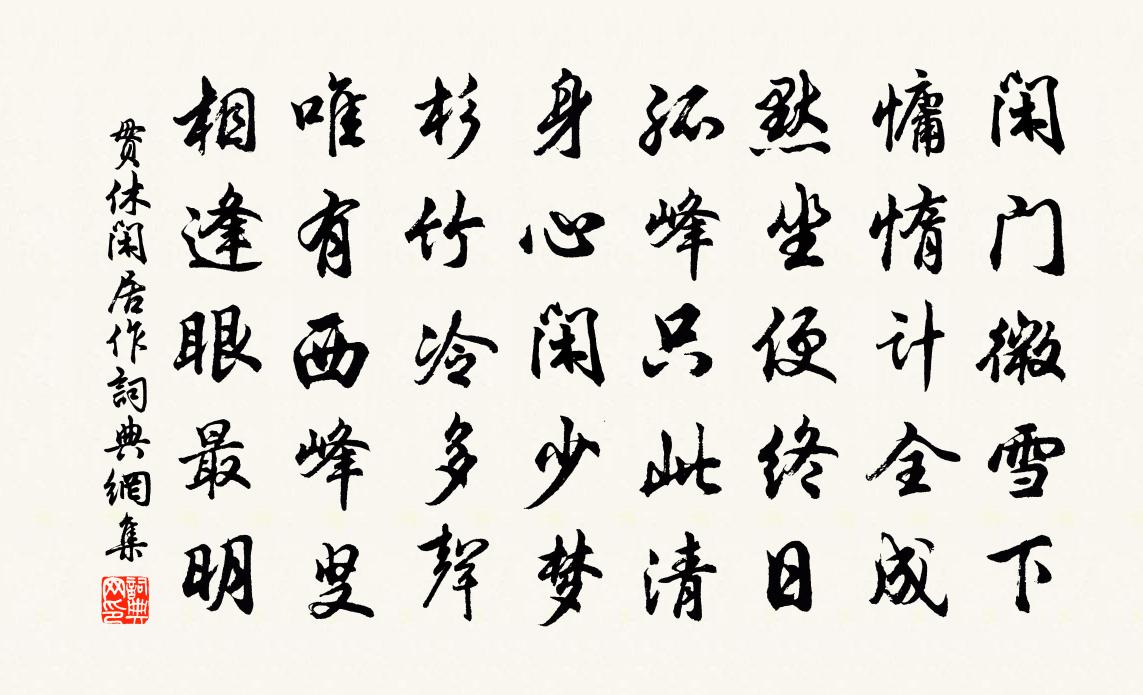 闲门微雪下
慵惰计全成
默坐便终日
孤峰只此清
身心闲少梦
杉竹冷多声
唯有西峰叟
相逢眼最明
贯休闲居作詞典網集
詞典網印